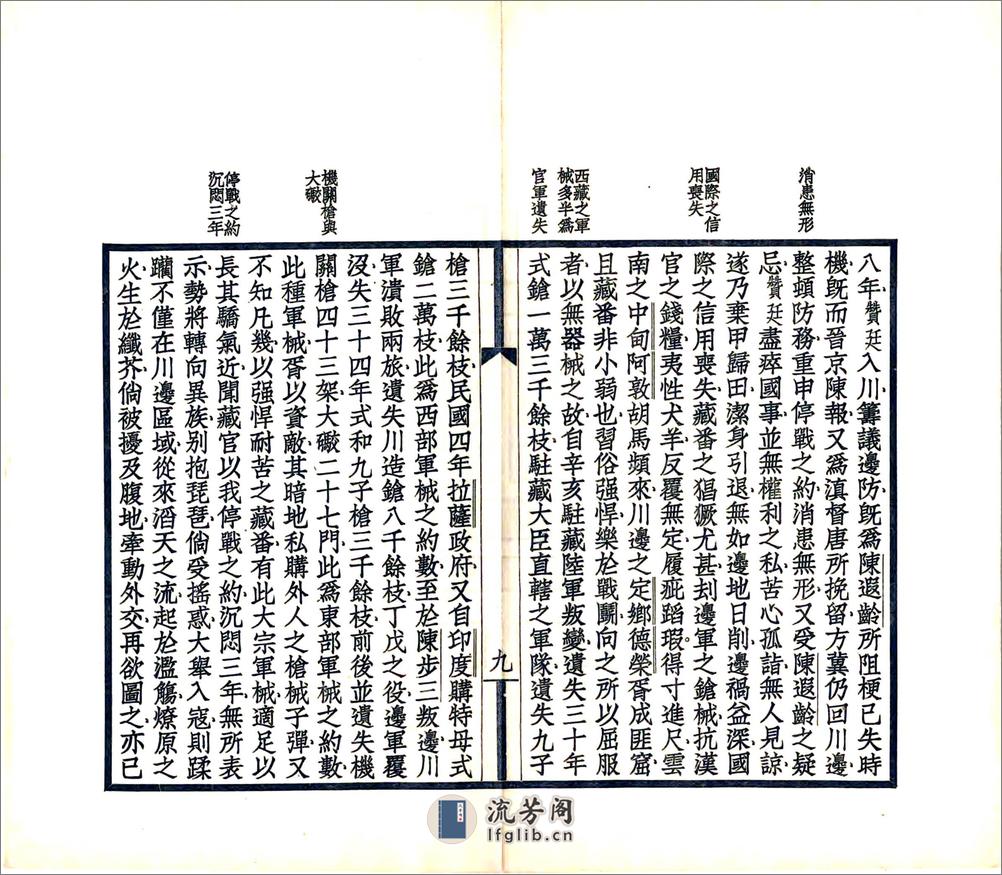 消患無形
國際之信
用喪失
西藏之軍
械多半爲
官軍遺失
八年贊廷入川籌議邊防旣爲陳遐齡所阻梗已失時
機旣而晉京陳報又爲滇督唐所挽留方冀仍回川邊
整頓防務重申停戰之約消患無形又受陳遐齡之疑
忌贊廷盡瘁國事並無權利之私苦心孤詣無人見諒
遂乃棄甲歸田潔身引退無如邊地日削邊禍益深國
際之信用喪失藏番之猖獗尤甚刦邊軍之鎗械抗漢
官之錢糧夷性犬羊反覆無定履疵蹈瑕。得寸進尺雲
南之中甸阿敦胡馬頻來川邊之定鄕德榮胥成匪窟
且藏番非小弱也習俗强悍樂於戰鬭向之所以屈服
者以無器械之故自辛亥駐藏陸軍叛變遺失三十年
式鎗一萬三千餘枝駐藏大臣直轄之軍隊遺失九子
九
機關槍與
大礮
停戰之約
沉悶三年
槍三千餘枝民國四年拉薩政府又自印度購特母式
鎗二萬枝此爲西部軍械之約數至於陳步三叛邊川
軍潰敗兩旅遺失川造鎗八千餘枝丁戊之役邊軍覆
沒失三十四年式和九子槍三千餘枝前後並遺失機
關槍四十三架大礮二十七門此爲東部軍械之約數
此種軍械胥以資敵其暗地私購外人之槍械子彈又
不知凡幾以强悍耐苦之藏番有此大宗軍械適足以
長其驕氣近聞藏官以我停戰之約沉悶三年無所表
示勢將轉向異族别抱琵琶倘受搖惑大舉入寇則蹂
躪不僅在川邊區域從來滔天之流起於濫觴燎原之
火生於纖芥倘被擾及腹地牽動外交再欲圖之亦已
流芳阁
lfglib.cn